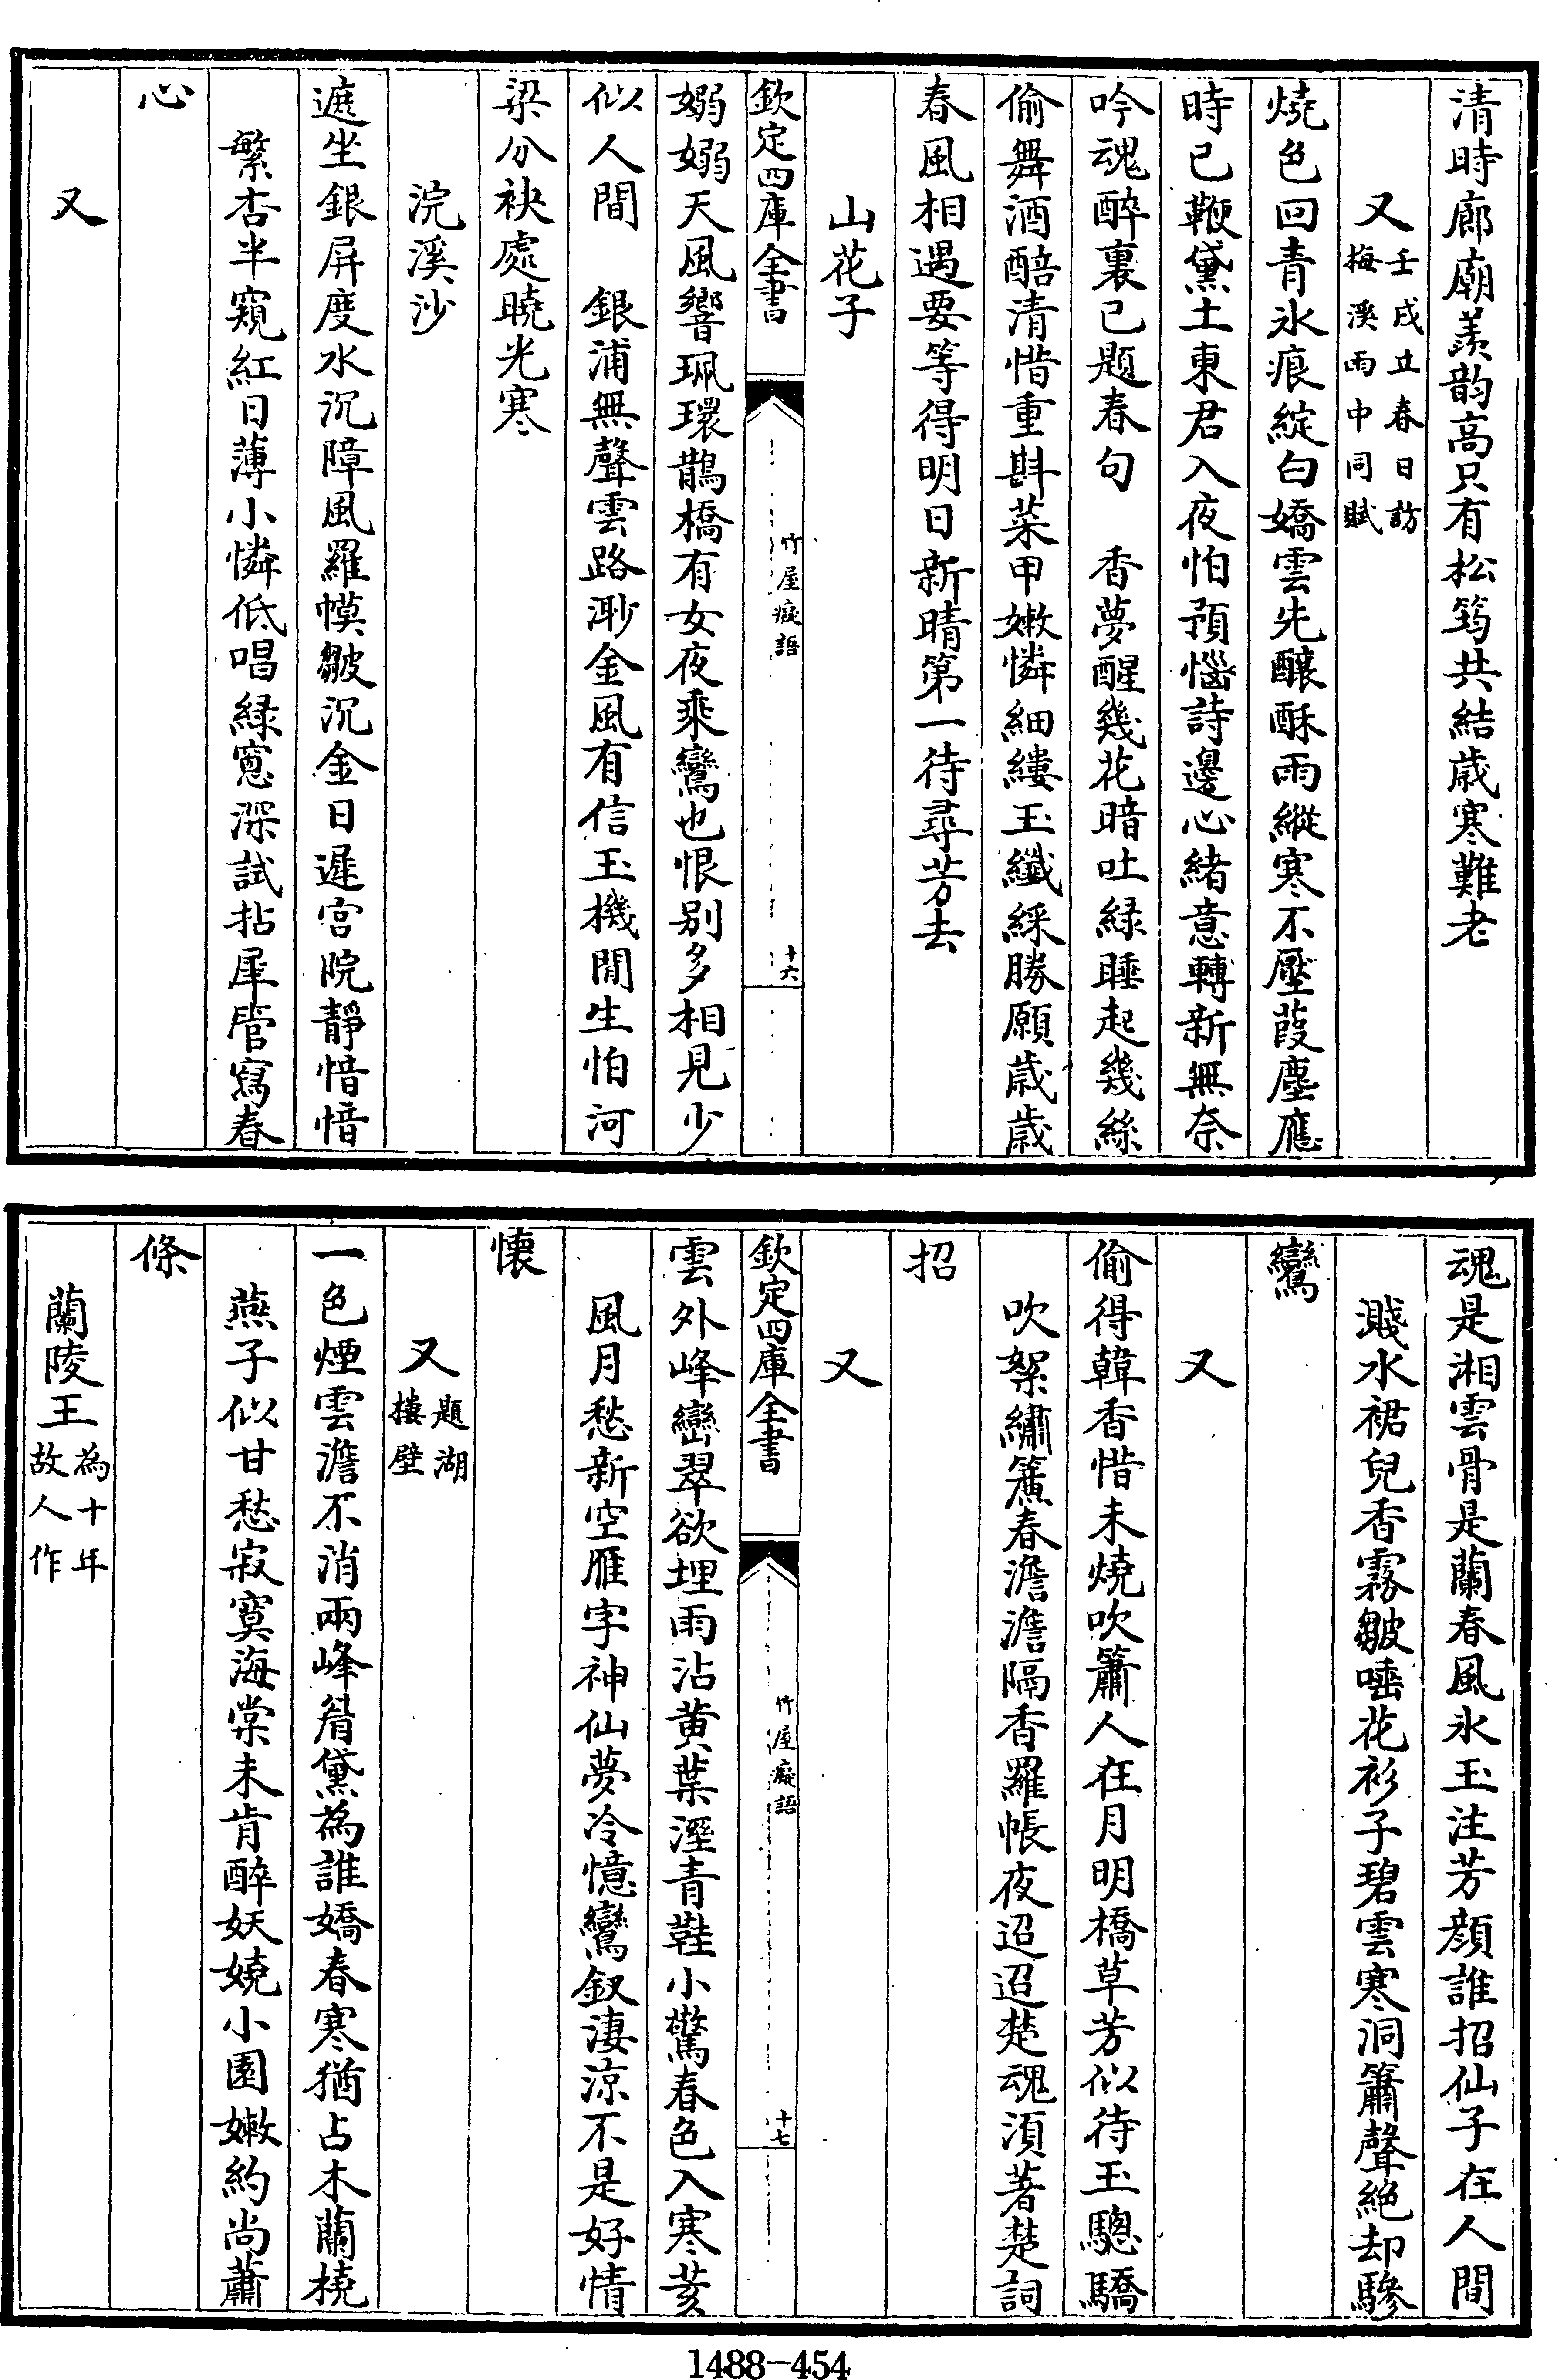 清時廊廟羨韵高只有松筠共結歳寒難老
又壬戌立春日訪梅溪雨中同賦
燒色回青氷痕綻白嬌雲先釀酥雨縱寒不壓葭塵應
時已鞭黛土東君入夜怕預惱詩邊心緒意轉新無奈
吟魂醉裏已題春句　香夢醒幾花暗吐緑睡起幾絲
偷舞酒醅清惜重斟菜甲嫩憐細縷玉纖綵勝願歳歳
春風相遇要等得明日新晴第一待尋芳去
山花子
欽定四庫全書
竹屋癡語
十六
嫋嫋天風響珮環鵲橋有女夜乘鸞也恨别多相見少
似人間　銀浦無聲雲路渺金風有信玉機閒生怕河
梁分袂處曉光寒
浣溪沙
遮坐銀屏度水沉障風羅幙皺沉金日遲宫院靜愔愔
繁杏半窺紅日薄小憐低唱緑窻深試拈犀管寫春
心
又
魂是湘雲骨是蘭春風氷玉注芳顔誰招仙子在人間
濺水裙兒香霧皺唾花衫子碧雲寒洞簫聲絶却驂
鸞
又
偷得韓香惜未燒吹簫人在月明橋草芳似待玉驄驕
吹絮繡簾春澹澹隔香羅帳夜迢迢楚魂湏著楚詞
招
又
欽定四庫全書
竹屋癡語
十七
雲外峰巒翠欲埋雨沾黄葉溼青鞋小驚春色入寒荄
風月愁新空雁字神仙夢冷憶鸞釵淒涼不是好情
懐
又題湖樓壁
一色煙雲澹不消兩峰眉黛為誰嬌春寒猶占木蘭橈
燕子似甘愁寂寞海棠未肯醉妖嬈小園嫩約尚蕭
條
蘭陵王為十年故人作
1488-454